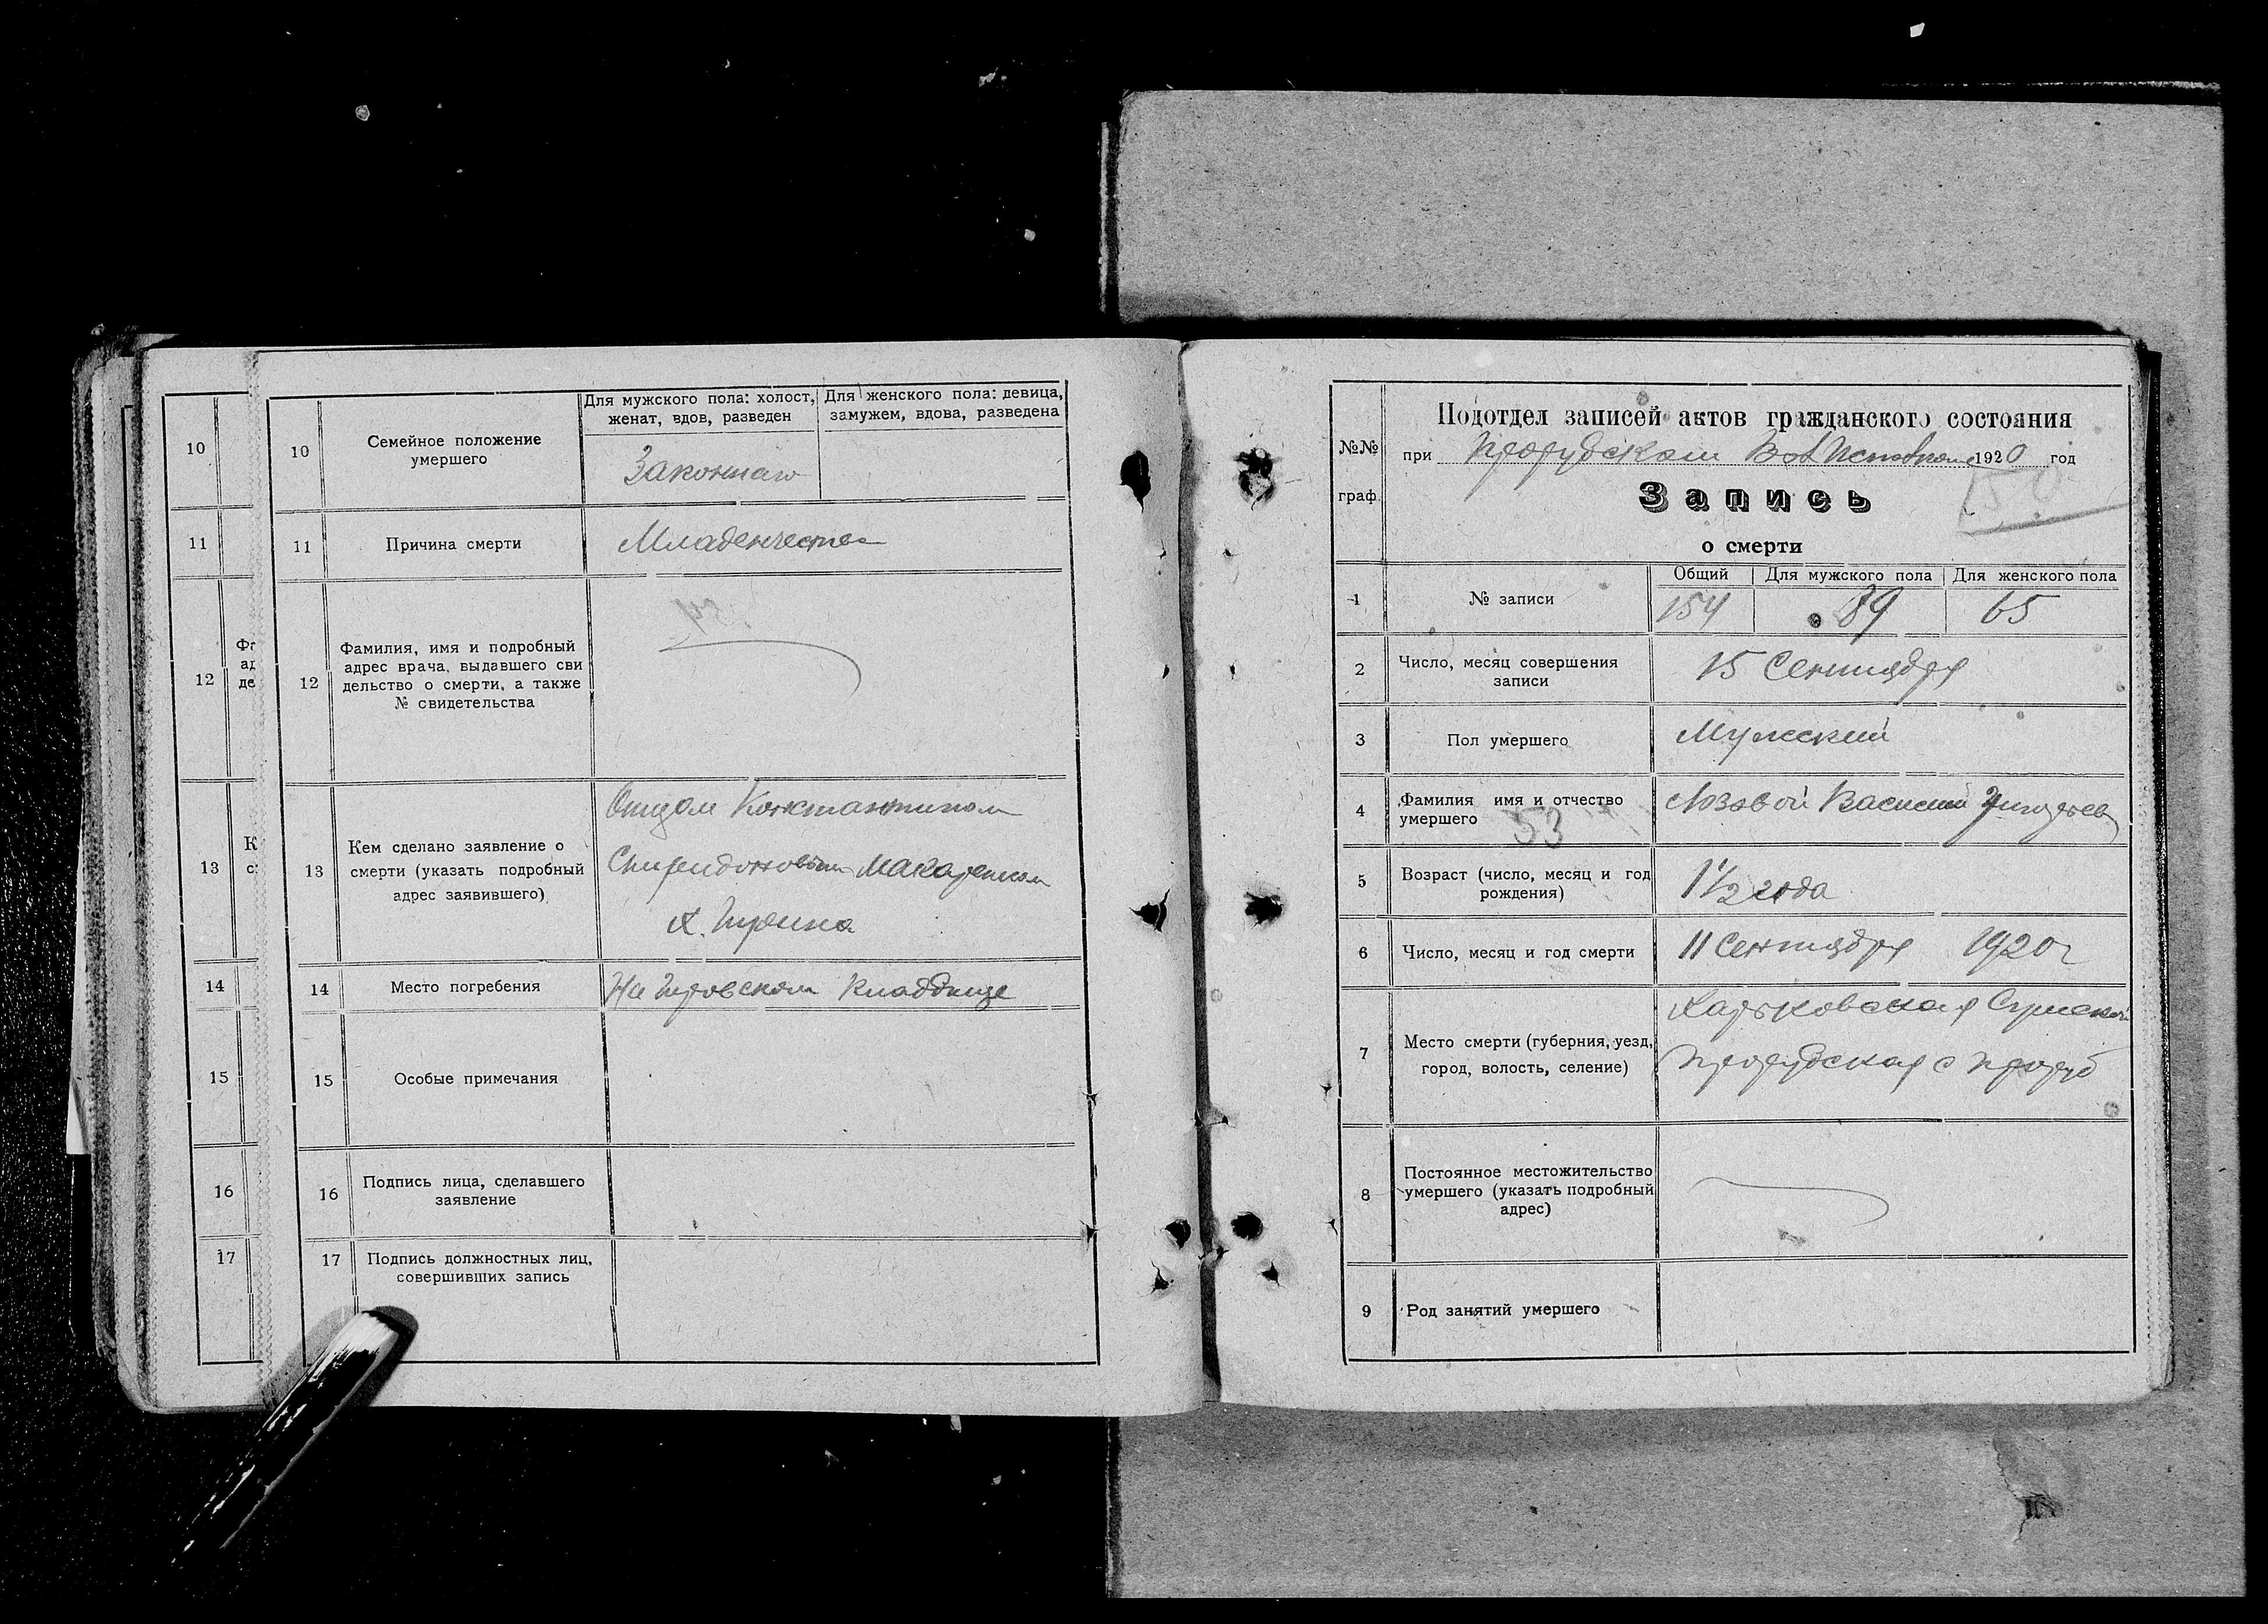 10
11
12
Фа
ад
де
13
К
с
14
15
16
17
10
Семейное положение
умершего
Для мужского пола: холост,
женат, вдов, разведен
Для женского пола: девица,
замужем, вдова, разведена
Законнаго
11
Причина смерти
Младенчества
12
Фамилия, имя и подробный
адрес врача, выдавшего сви
дельство о смерти, а также
№ свидетельства
13
Кем сделано заявление о
смерти (указать подробный
адрес заявившего)
Отцом Константином
Спиридоновым Макаренком
х.
14
Место погребения
На кладбище
15
Особые примечания
16
Подпись лица, сделавшего
заявление
17
Подпись должностных лиц,
совершивших запись
№№
граф.
Подотдел записей актов гражданского состояния
при Прорубском Вол Исполкоме 1920 год
Запись
о смерти
1
№ записи
Общий
Для мужского пола
Для женского пола
154
89
65
2
Число, месяц совершения
записи
15 Сентября
3
Пол умершего
Мужский
4
Фамилия имя и отчество
умершего
53
Лозовой Василий
5
Возраст (число, месяц и год
рождения)
1 1/2 года
6
Число, месяц и год смерти
11 Сентября 1920 г
7
Место смерти (губерния, уезд,
город, волость, селение)
Харьковская Сумской
Прорубская с Проруб
8
Постоянное местожительство
умершего (указать подробный
адрес)
9
Род занятий умершего